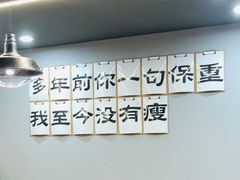 多年前你一句保重
我至今没有瘦